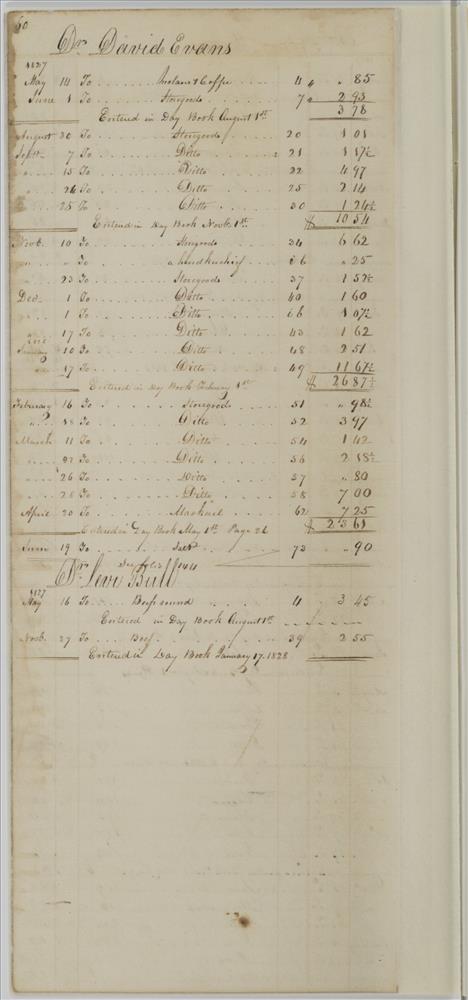 60
Dr David Evans
1827
May 14 To Molases & Coffee 4 " 85
June 1 To Storgoods 7 2 93
3 78
Entered in Day Book August 1st
August 30 To Storgoods 20 1 01
Septr 7 To Ditto 21 1 17½
" 15 To Ditto 22 4 97
" 26 To Ditto 25 2 14
25 To Ditto 30 1 24½
$ 10 54
Entered in Day Book Novb 1st
Novb 10 To Storgoods 34 6 62
" " To a handkuchief 36 " 25
" 23 To Storgoods 37 1 52½
Decr 1 To Ditto 40 1 60
" 1 To Ditto 66 1 07½
" 17 To Ditto 43 1 62
January 10 To Ditto 48 2 51
" 17 To Ditto 49 11 67½
$ 26 87½
Entered in Day Book Feburary 1st
Feburary 16 To Storgoods 51 " 98½
" 18 To Ditto 52 3 97
March 11 To Ditto 54 1 42
" To Ditto 56 2 18½
" 26 To Ditto 57 " 80
" 28 To Ditto 58 7 00
April 20 To Mackrel 62 7 25
$ 23 61
Entered in Day Book May 1st Page 26
June 19 To Salt 73 " 90
Dr Levi Bull
1827
May 16 To Beef round 4 3 45
Entered in Day Book August 1st
Novb. 27 To Beef 39 2 55
Entered in Day Book January 17. 1828